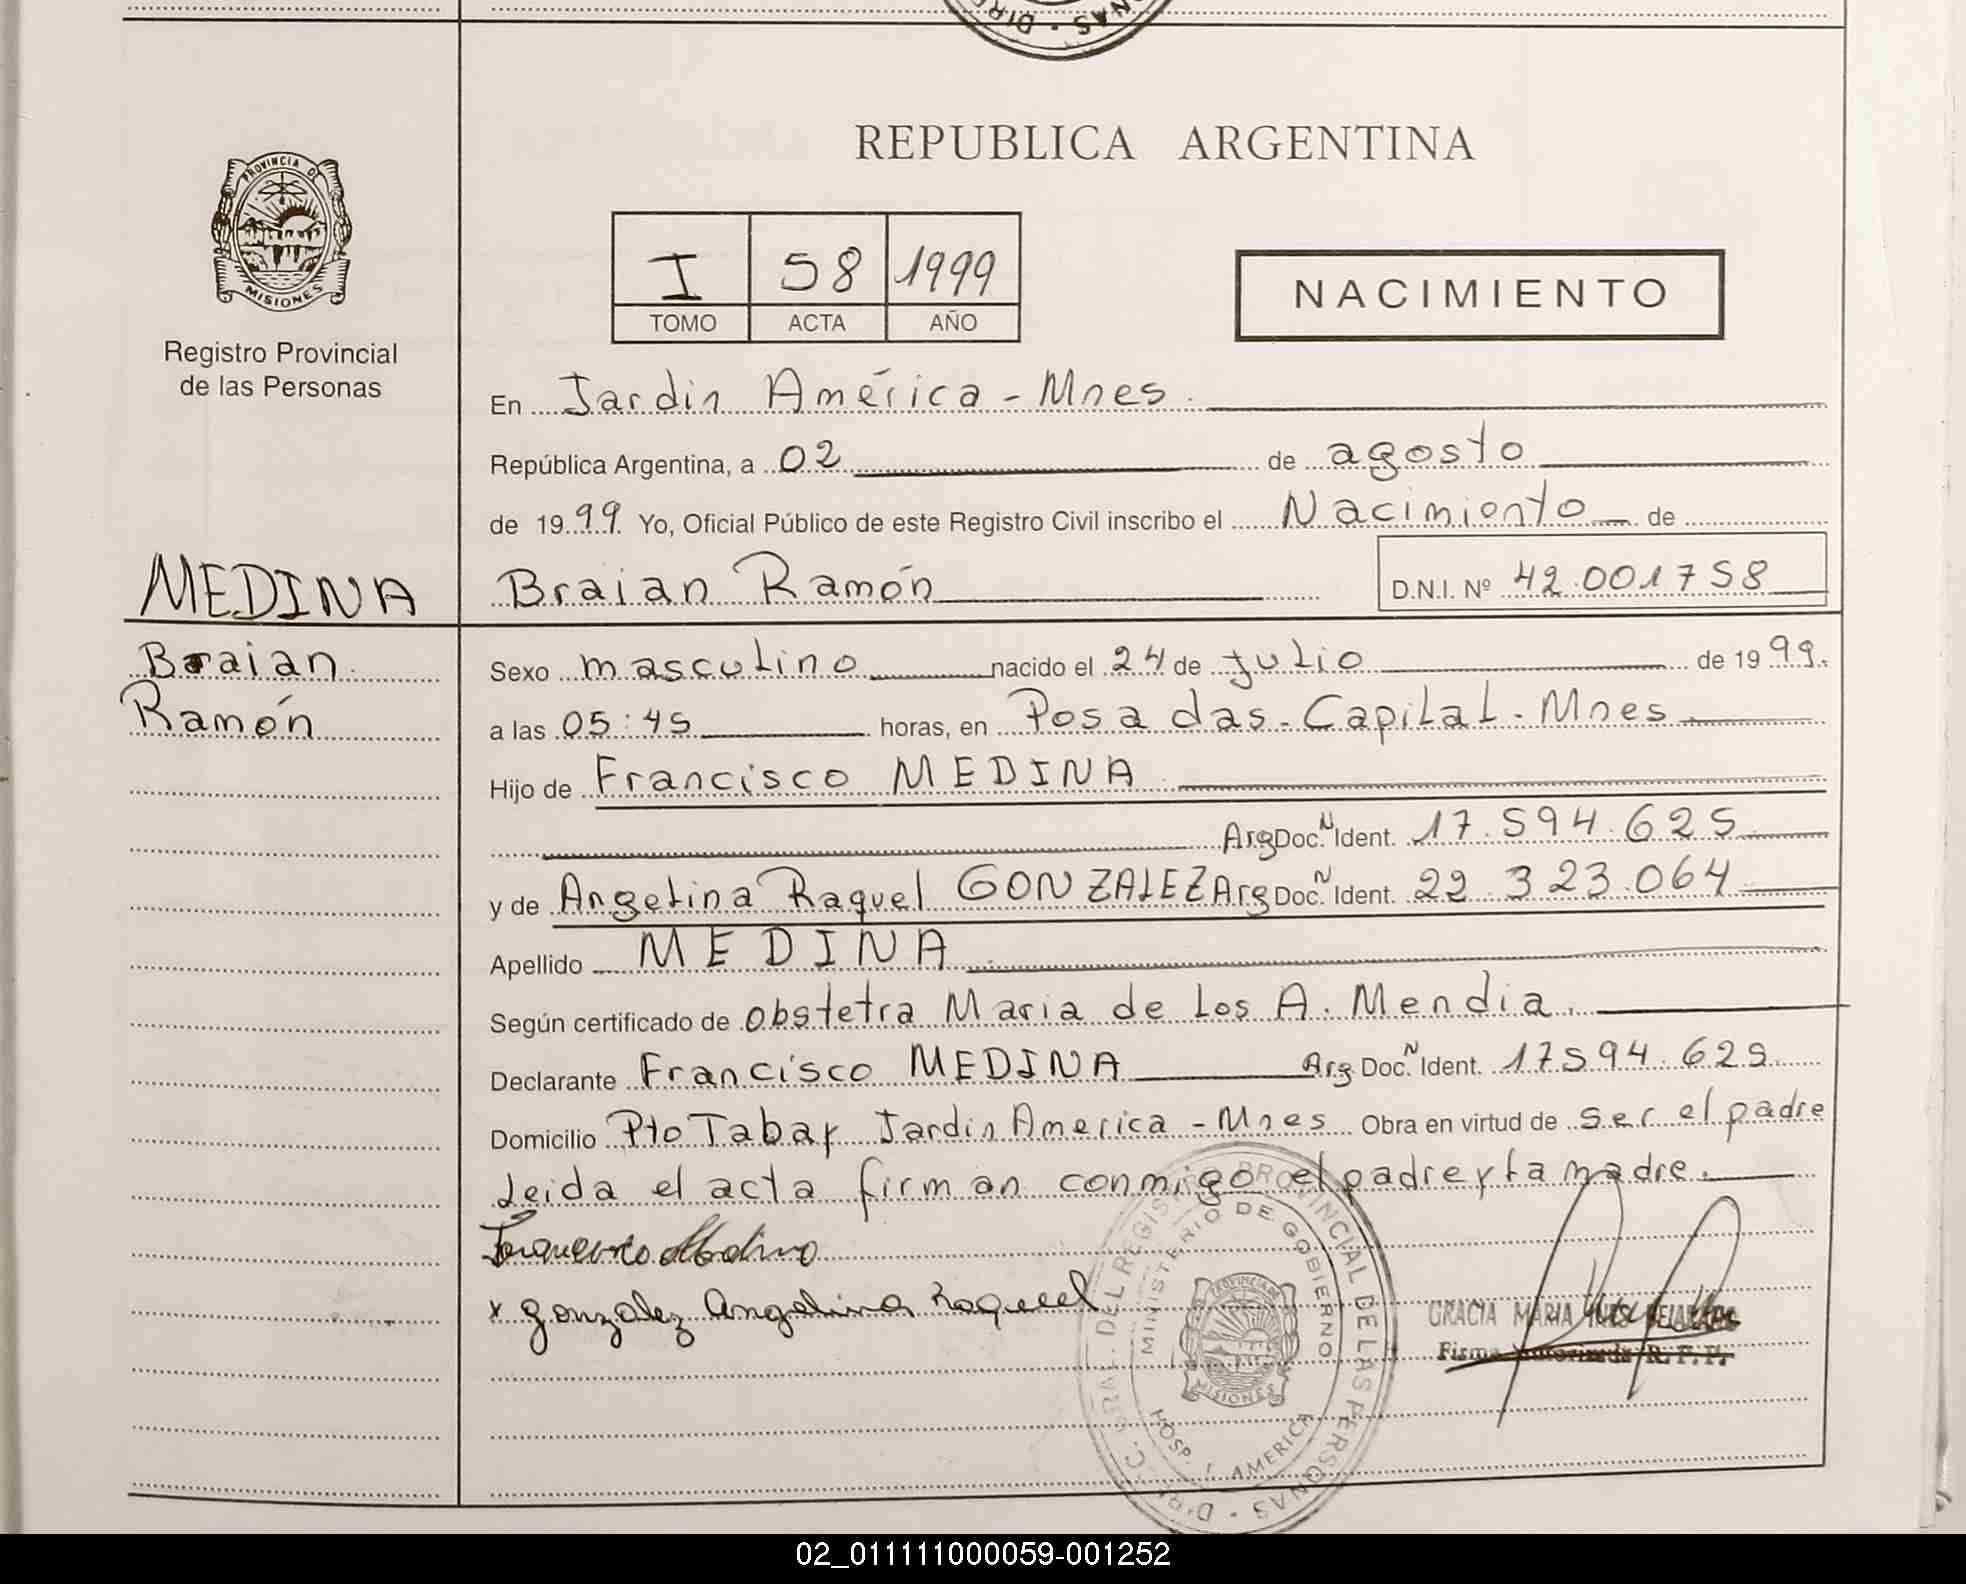 DIR · SAN
REPUBLICA ARGENTINA
PROVINCIA DE
MISIONES
Registro Provincial
de las Personas
I 58 1999
TOMO ACTA AÑO
NACIMIENTO
En Jardin América - Mnes.
República Argentina, a 02 de agosto
de 1999 Yo, Oficial Público de este Registro Civil inscribo el Nacimiento de
MEDINA
Braian
Ramón
Braian Ramón D.N.I. Nº 42.001758
Sexo masculino nacido el 24 de julio de 1999.
a las 05:45 horas, en Posadas - Capital - Mnes
Hijo de Francisco MEDINA
Arg Doc. N Ident. 17.594.625
y de Angelina Raquel GONZALEZ Arg Doc. N Ident. 22.323.064
Apellido MEDINA
Según certificado de obstetra Maria de los A. Mendia.
Declarante Francisco MEDINA Arg Doc. N Ident. 17594.625
Domicilio Pto Tabay Jardin America - Mnes Obra en virtud de ser el padre
Leida el acta firman conmigo el padre y la madre.
x gonzalez Angelina Raquel
DEL REGISTRO PROVINCIAL DE LAS PERSONAS
MINISTERIO DE GOBIERNO
PROVINCIA DE
MISIONES
HOSP. J. AMERICA
GRACIA MARIA INES
Firma Autorizada R. P. P.
02_011111000059-001252